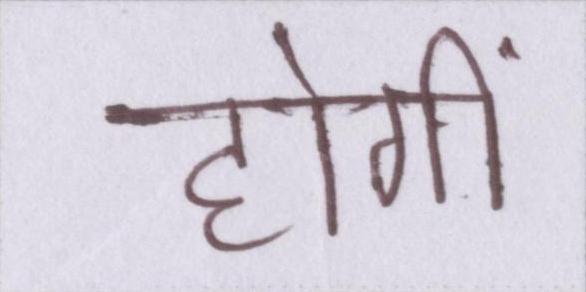 होगीं